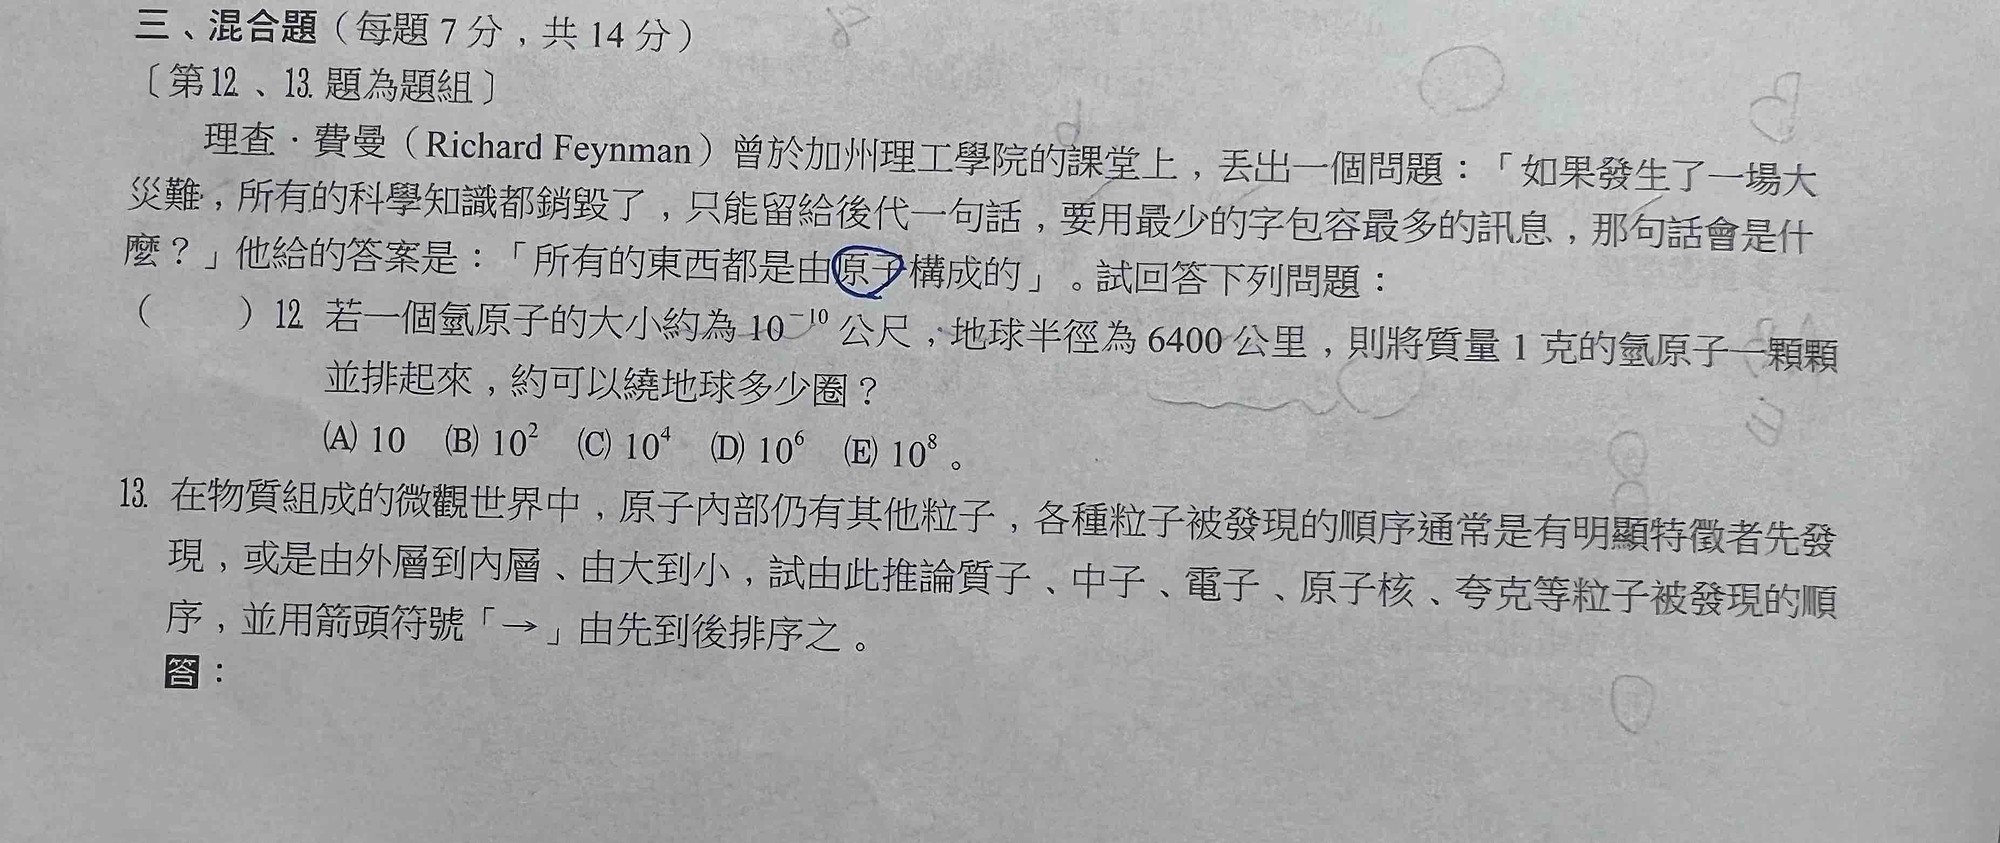 三、混合題（每題 7 分，共 14 分）
〔第12、13. 題為題組〕
理查．費曼（Richard Feynman）曾於加州理工學院的課堂上，丟出一個問題：「如果發生了一場大
災難，所有的科學知識都銷毀了，只能留給後代一句話，要用最少的字包容最多的訊息，那句話會是什
麼？」他給的答案是：「所有的東西都是由原子構成的」。試回答下列問題：
（　　）12. 若一個氫原子的大小約為 10⁻¹⁰ 公尺，地球半徑為 6400 公里，則將質量 1 克的氫原子一顆顆
並排起來，約可以繞地球多少圈？
(A) 10　(B) 10²　(C) 10⁴　(D) 10⁶　(E) 10⁸。
13. 在物質組成的微觀世界中，原子內部仍有其他粒子，各種粒子被發現的順序通常是有明顯特徵者先發
現，或是由外層到內層、由大到小，試由此推論質子、中子、電子、原子核、夸克等粒子被發現的順
序，並用箭頭符號「→」由先到後排序之。
答：